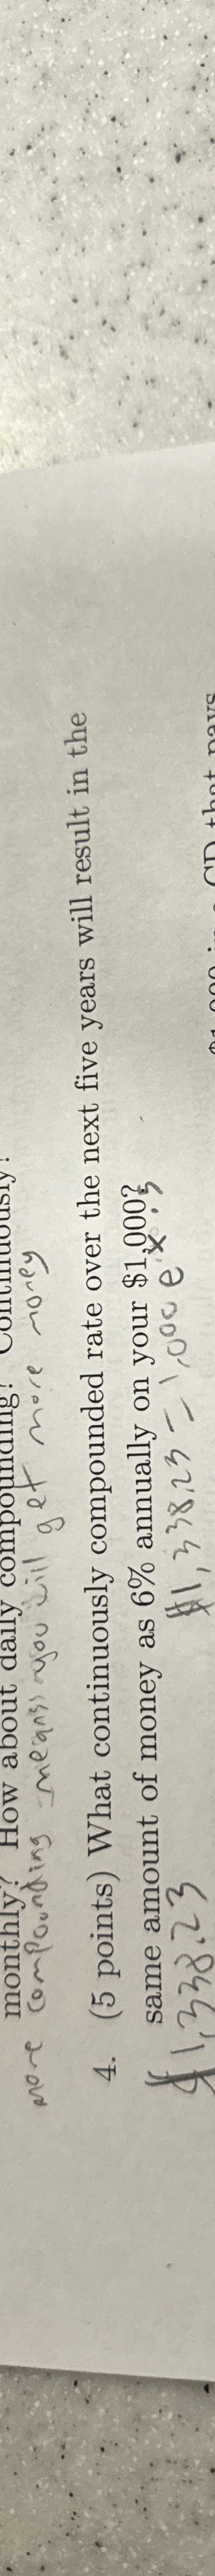 monthly? How about daily compounding? Continuously?
more compounding means you will get more money
4. (5 points) What continuously compounded rate over the next five years will result in the
same amount of money as 6% annually on your $1,000?
$1,338.23 $1,338.23 = 1,000 e^x·5
CD that pays